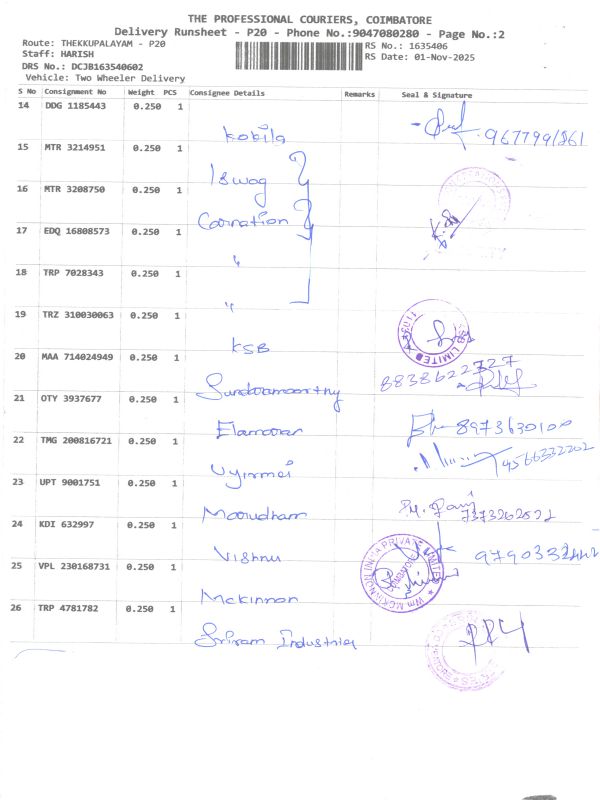 THE PROFESSIONAL COURIERS, COIMBATORE
Delivery Runsheet - P20 - Phone No.:9047080280 - Page No.:2
Route: THEKKUPALAYAM - P20
Staff: HARISH
DRS No.: DCJB163540602
Vehicle: Two Wheeler Delivery
RS No.: 1635406
RS Date: 01-Nov-2025
S No Consignment No Weight PCS Consignee Details Remarks Seal & Signature
14 DDG 1185443 0.250 1
Kobila
15 MTR 3214951 0.250 1
Iswag
16 MTR 3208750 0.250 1
Carnation
17 EDQ 16808573 0.250 1
"
18 TRP 7028343 0.250 1
"
19 TRZ 310030063 0.250 1
KSB
LIMITED
20 MAA 714024949 0.250 1
8838622727
Sundramoorthy
21 OTY 3937677 0.250 1
8973630100
22 TMG 200816721 0.250 1
Uyirmei
9566332202
23 UPT 9001751 0.250 1
Marudham
7373262521
24 KDI 632997 0.250 1
Vishnu
25 VPL 230168731 0.250 1
Mckinnon
Wm MCKINNON INDIA PRIVATE LIMITED
26 TRP 4781782 0.250 1
Sriram Industries